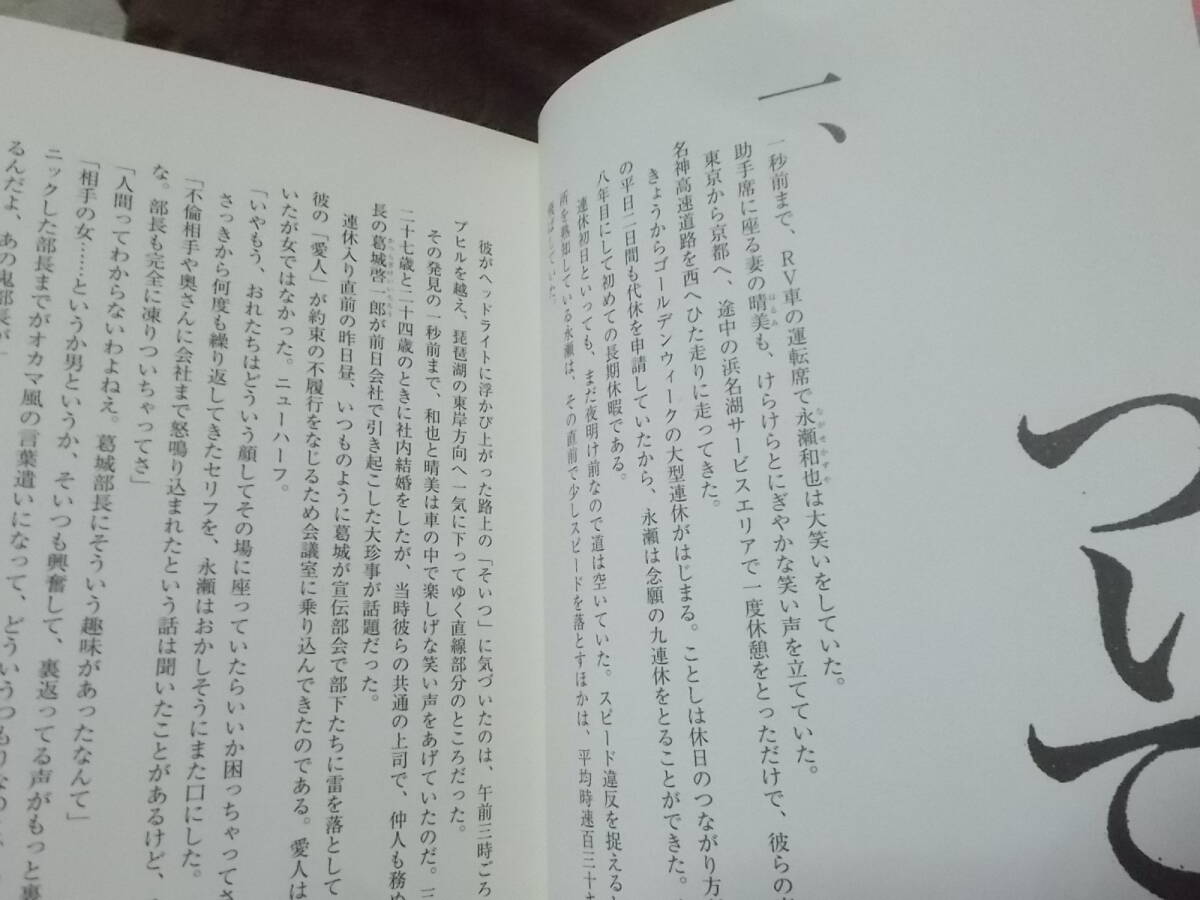 ついて
一、
一秒前まで、ＲＶ車の運転席で永瀬和也は大笑いをしていた。
助手席に座る妻の晴美も、けらけらとにぎやかな笑い声を立てていた。
東京から京都へ、途中の浜名湖サービスエリアで一度休憩をとっただけで、彼らの
名神高速道路を西へひた走りに走ってきた。
きょうからゴールデンウィークの大型連休がはじまる。ことしは休日のつながり方
の平日二日間も代休を申請していたから、永瀬は念願の九連休をとることができた。
八年目にして初めての長期休暇である。
連休初日といっても、まだ夜明け前なので道は空いていた。スピード違反を捉える
所を熟知している永瀬は、その直前で少しスピードを落とすほかは、平均時速百三十
飛ばしていた。
彼がヘッドライトに浮かび上がった路上の「そいつ」に気づいたのは、午前三時ごろ
プヒルを越え、琵琶湖の東岸方向へ一気に下ってゆく直線部分のところだった。
その発見の一秒前まで、和也と晴美は車の中で楽しげな笑い声をあげていたのだ。
二十七歳と二十四歳のときに社内結婚をしたが、当時彼らの共通の上司で、仲人も務め
長の葛城啓一郎が前日会社で引き起こした大珍事が話題だった。
連休入り直前の昨日昼、いつものように葛城が宣伝部会で部下たちに雷を落として
彼の「愛人」が約束の不履行をなじるため会議室に乗り込んできたのである。愛人は
いたが女ではなかった。ニューハーフ。
「いやもう、おれたちはどういう顔してその場に座っていたらいいか困っちゃってさ
さっきから何度も繰り返してきたセリフを、永瀬はおかしそうにまた口にした。
「不倫相手や奥さんに会社まで怒鳴り込まれたという話は聞いたことがあるけど、
な。部長も完全に凍りついちゃってさ」
「人間ってわからないわよねえ。葛城部長にそういう趣味があったなんて」
「相手の女……というか男というか、そいつも興奮して、裏返ってる声がもっと裏
ニックした部長までがオカマ風の言葉遣いになって、どういうつもりなの
るんだよ、あの鬼部長が」